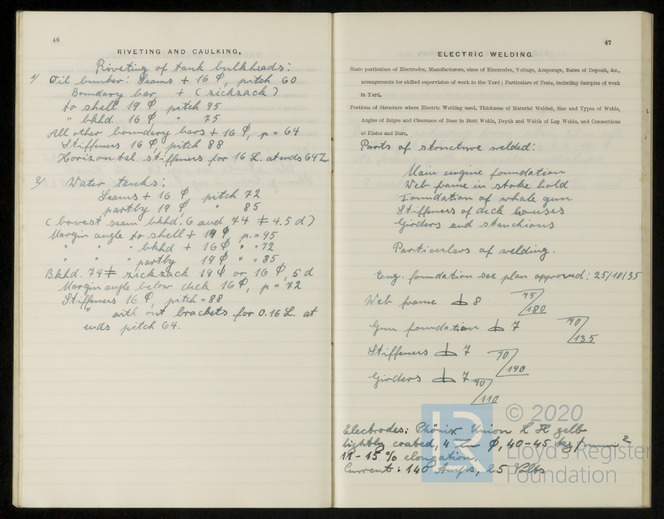 46
RIVETING AND CAULKING.
Riveting of tank bulkheads:
1/ Oil bunker: Seams ‡ 16 φ, pitch 60
Boundary bar ‡ (zickzack)
to shell 19 φ pitch 95
" bkhd 19 φ " 75
All other boundary bars ‡ 16 φ, p = 64
Stiffeners 16 φ, pitch 88
Horizontal stiffeners for 16 L. at ends 64
2/ Water tanks:
Seams ‡ 16 φ pitch 72
partly 19 φ " 85
(lowest seam bkhd: 6 and 74 ‡ 4.5 d)
Margin angle to shell ‡ 19 φ p. = 95
" " " bkhd ‡ 16 φ " = 72
" " " partly 19 φ " = 85
Bkhd. 74 ‡ zickzack 19 φ or 16 φ, 5 d
Margin angle below deck 16 φ, p = 72
Stiffeners 16 φ, pitch = 88
" without brackets for 0.16 L. at
ends pitch 64.
47
ELECTRIC WELDING.
State particulars of Electrodes, Manufacturers, sizes of Electrodes, Voltage, Amperage, Rates of Deposit, &c.,
arrangements for skilled supervision of work in the Yard; Particulars of Tests, including Samples of work
in Yard.
Portions of Structure where Electric Welding used, Thickness of Material Welded, Size and Types of Welds,
Angles of Edges and Clearance of Base in Butt Welds, Depth and Width of Lap Welds, and Connections
at Floor and Bars.
Parts of structure welded:
Main engine foundation
Web frame in stoke hold
Foundation of whale gun
Stiffeners of deck houses
Girders and stanchions
Particulars of welding.
Eng. foundation see plan approved: 25/10/35
Web frame 8 75/180
Gun foundation 7 90/135
Stiffeners 7 70/190
Girders 7 90/110
Electrodes: Phönix Union L H gelb
lightly coated, 4 φ, 40-45 kg/mm²
-15 % elongation.
Current: 140 Amps, 25 Volts
© 2020
LR
Lloyd's Register
Foundation